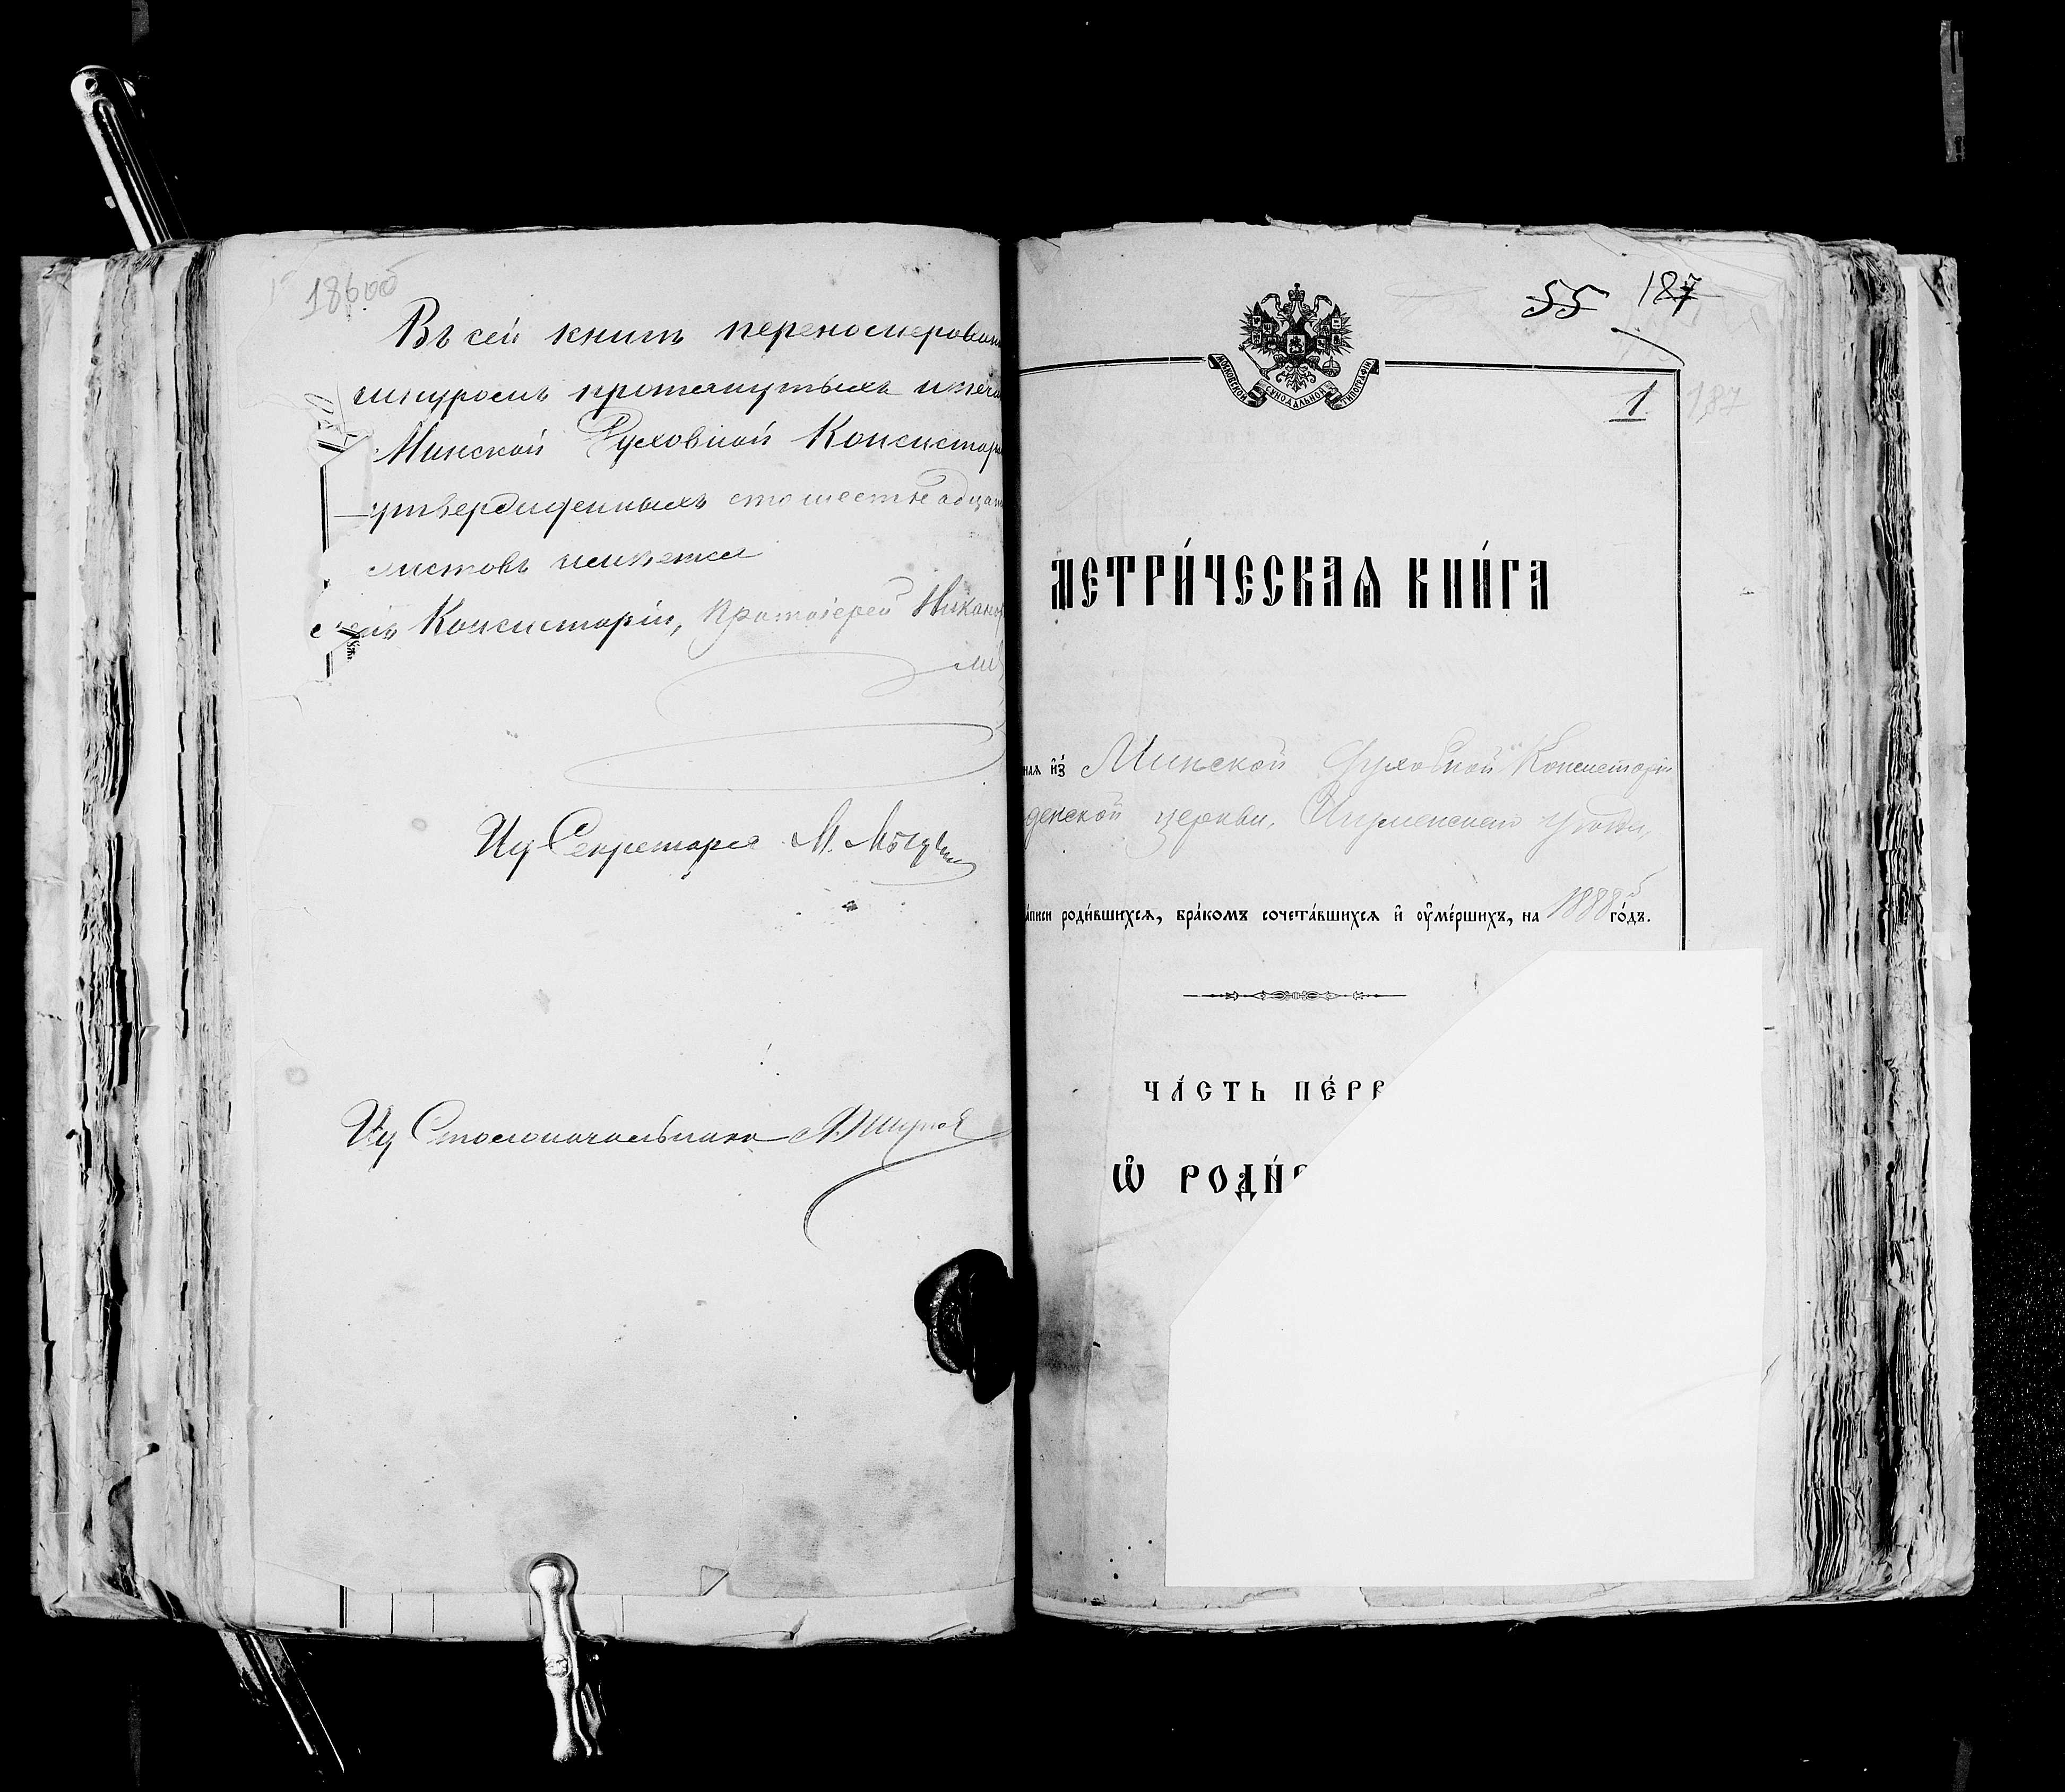 186об
Въ сей книгѣ перенумерован
шнуромъ протянутыхъ и печа
Минской Духовной Консистор
утвержденныхъ сто шестнадцат
листовъ имѣется
Членъ Консисторіи, Протоіерей Никанор
Ид Секретаря М.
Ид Столоначальника
55 187
МОСКОВСКОЙ СѴНОДАЛЬНОЙ ТИПОГРАФІИ
1 187
МЕТРИ́ЧЕСКАѦ КНИ́ГА
наѧ и҆з̾ Минской Духовной Консисторіи
денской церкви, Игуменскаго уѣзда,
а́писи роди́вшихсѧ, бра́комъ сочета́вшихсѧ и҆ оу҆ме́ршихъ, на 1888 го́дъ.
ЧА́СТЬ ПЕ́РВ
Ѽ РОДИ́В